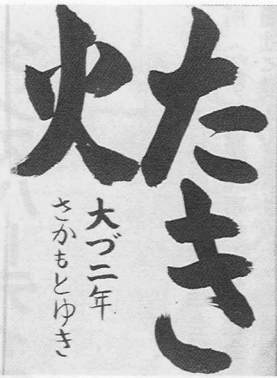 たき
火
大づ二年
さかもとゆき